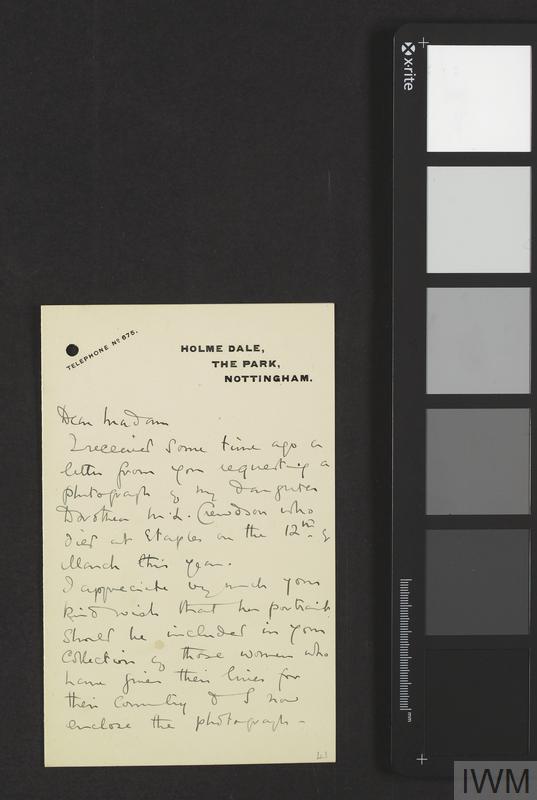 TELEPHONE No 675.
HOLME DALE,
THE PARK,
NOTTINGHAM.
Dear Madam
I received some time ago a
letter from you requesting a
photograph of my daughter
Dorothea M.L. Crewdson who
died at Etaples on the 12th of
March this year.
I appreciate very much your
kind wish that her portrait
should be included in your
Collection of those women who
have given their lives for
their Country & I now
enclose the photograph -
x-rite
mm
IWM